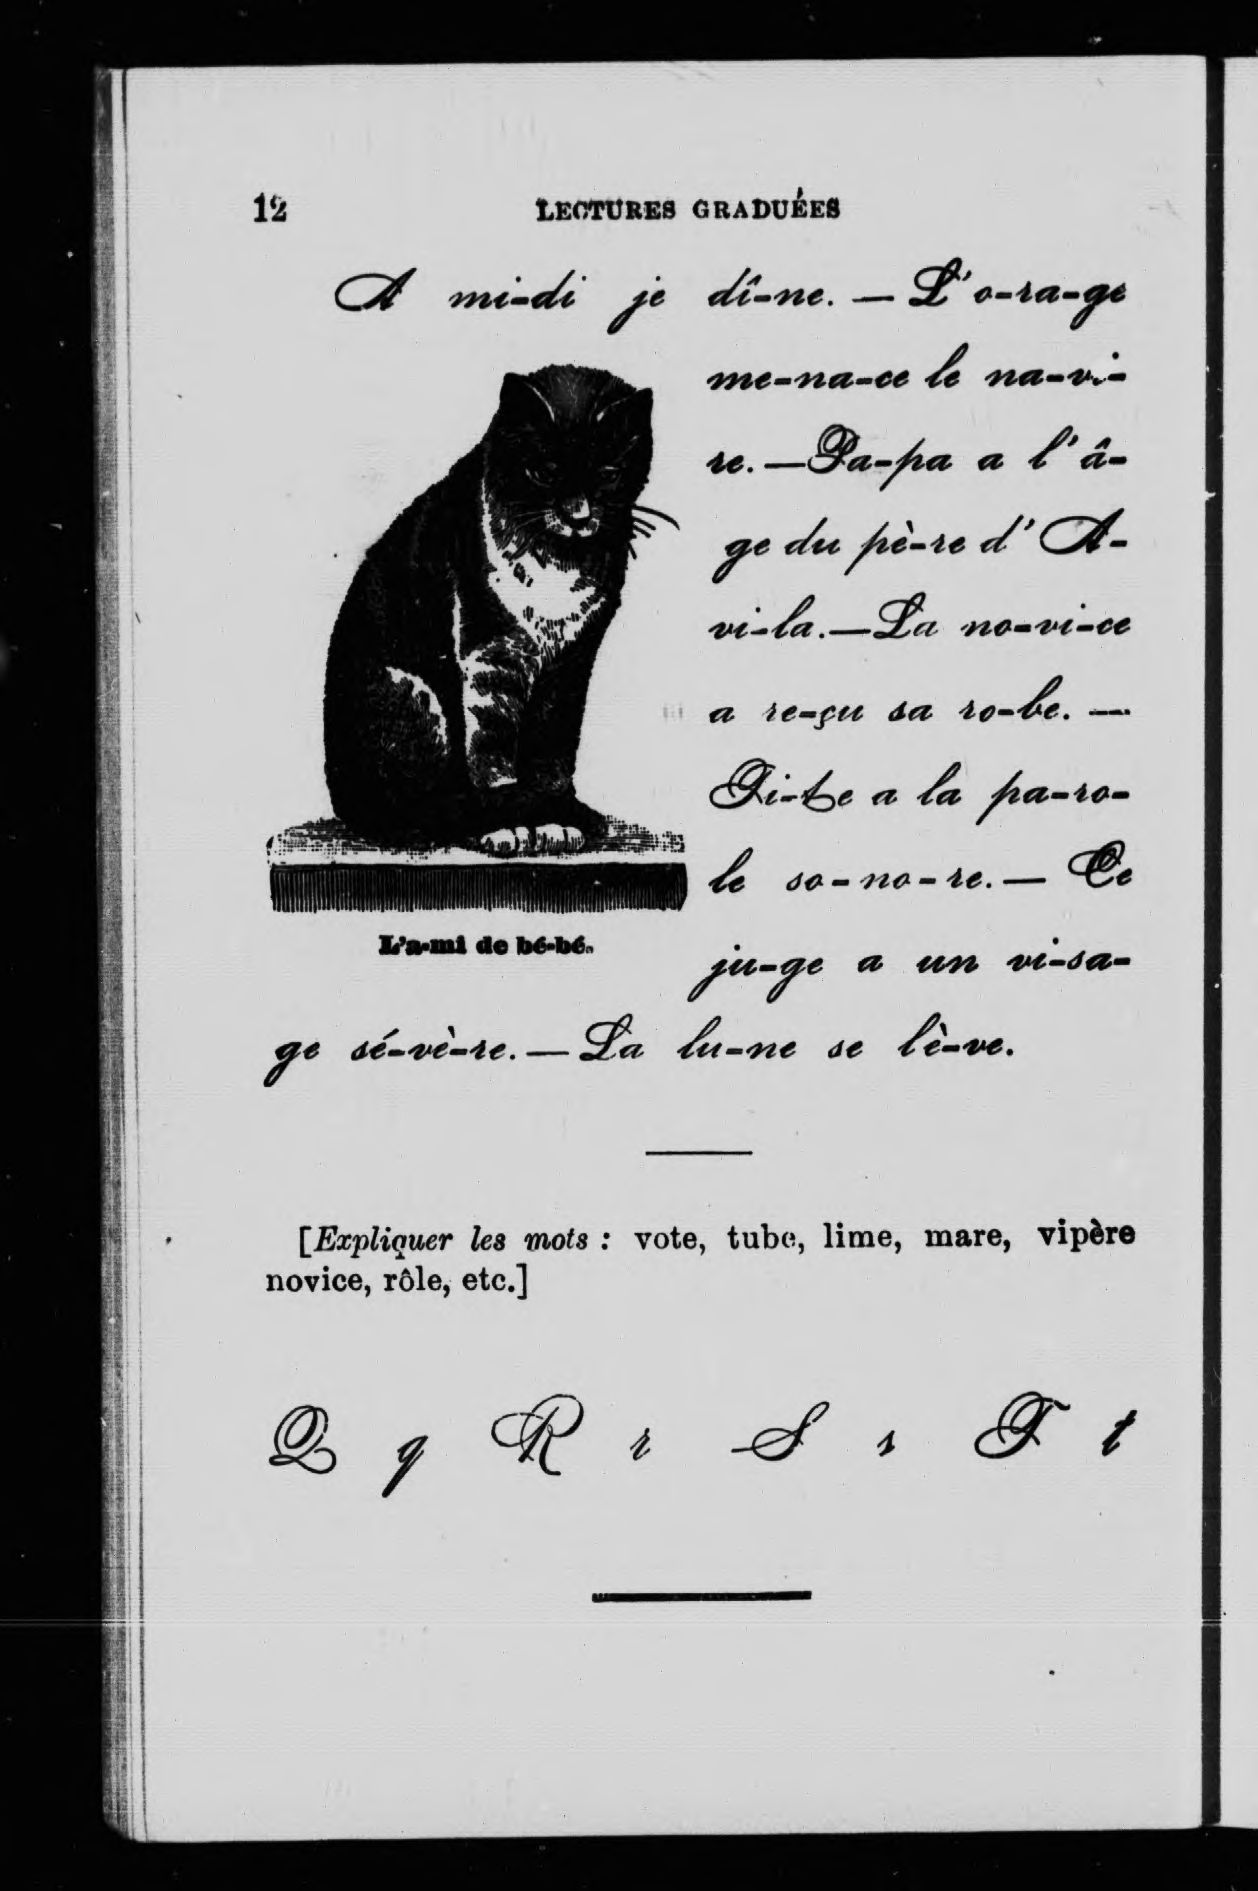 12 LECTURES GRADUÉES
A mi-di je dî-ne. — L'o-ra-ge
me-na-ce le na-vi-
re. — Pa-pa a l'â-
ge du pè-re d'A-
vi-la. — La no-vi-ce
a re-çu sa ro-be. —
Ti-te a la pa-ro-
le so-no-re. — Ce
ju-ge a un vi-sa-
ge sé-vè-re. — La lu-ne se lè-ve.
L'a-mi de bé-bé.
[Expliquer les mots : vote, tube, lime, mare, vipère
novice, rôle, etc.]
Q q R r S s T t